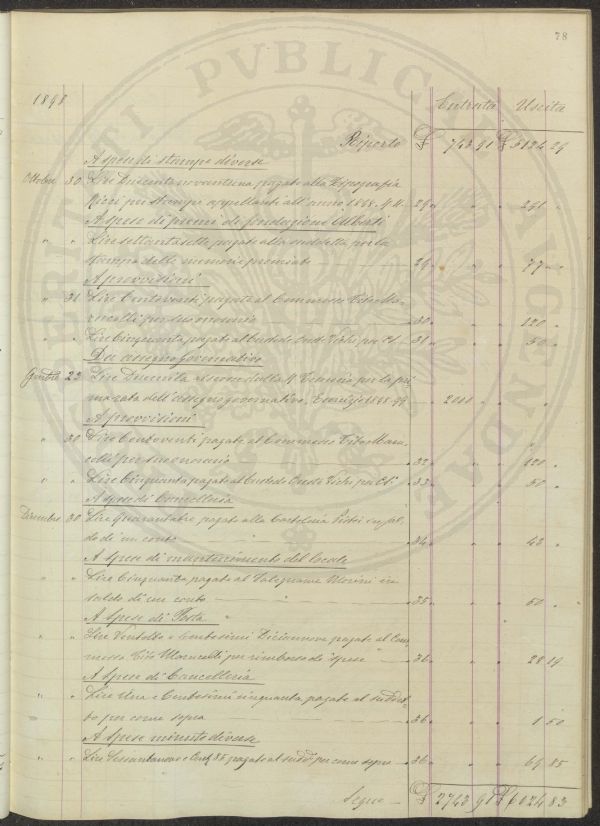 78
1898
Entrata Uscita
Riporto £ 743 91 £ 5124 29
A spese di stampe diverse
Ottobre 30 Lire Duecentonovantuna pagate alla Tipografia
Ricci per stampe appellanti all'anno 1898. 29 " 291 "
A spese di premi di fondazione Alberti
" " Lire settantasette pagate alla suddetta per la
stampa delle memorie premiate 29 " 77 "
A provvisioni
" 31 Lire Centoventi pagate al Commesso Tito Ma-
rucelli per suo onorario 30 " 120 "
" " Lire Cinquanta pagate al Custode 31 " 50 "
Da assegno governativo
23 Lire Duemila per la pri
ma rata dell'assegno governativo. Esercizio 1898-99 2000 "
A provvisioni
" 30 Lire Centoventi pagate al Commesso Tito Maru
celli per suo onorario 32 " 120 "
" " Lire Cinquanta pagate al Custode 33 " 50 "
A spese di Cancelleria
Dicembre 30 Lire Quarantadue pagate alla Cartoleria Pistri in sal-
do di un conto 34 " 42 "
A spese di mantenimento del locale
" " Lire Cinquanta pagate al Falegname Morini in
saldo di un conto 35 " 50 "
A spese di Posta
" " Lire Ventotto e Centesimi Diciannove pagate al Com
messo Tito Marucelli per rimborso di spese 36 " 28 19
A spese di Cancelleria
" " Lire Una e Centesimi cinquanta pagate al suddet-
to per come sopra 36 " 1 50
A spese minute diverse
" " Lire Sessantanove e Cent. 85 pagate al sudd. per come sopra 36 " 69 85
Segue £ 2743 91 £ 6024 83